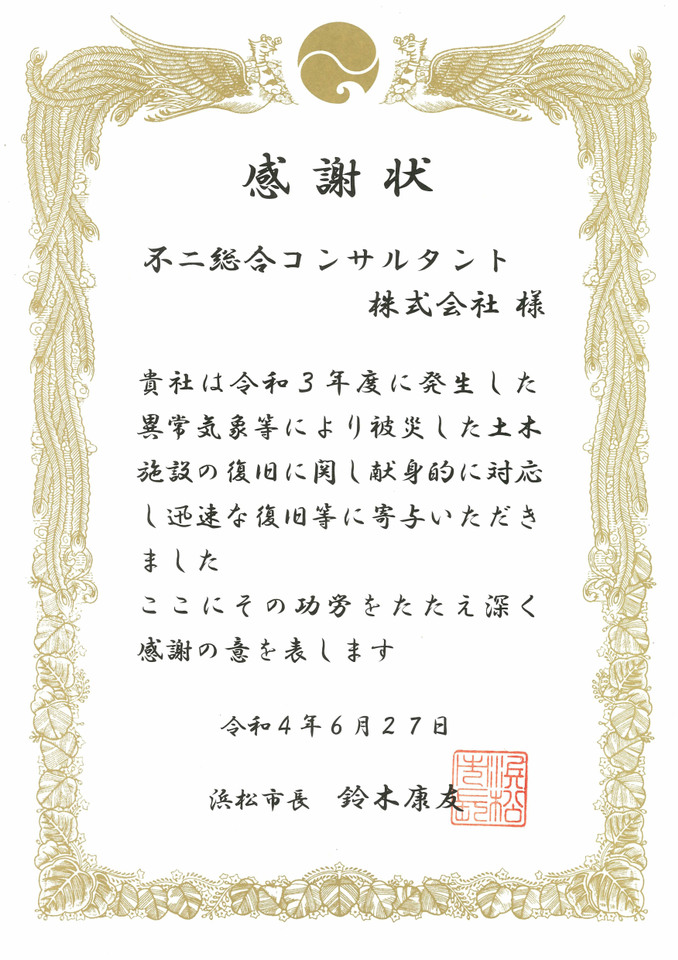 感謝状
不二総合コンサルタント
株式会社 様
貴社は令和3年度に発生した
異常気象等により被災した土木
施設の復旧に関し献身的に対応
し迅速な復旧等に寄与いただき
ました
ここにその功労をたたえ深く
感謝の意を表します
令和4年6月27日
浜松市長 鈴木康友
浜松
市長